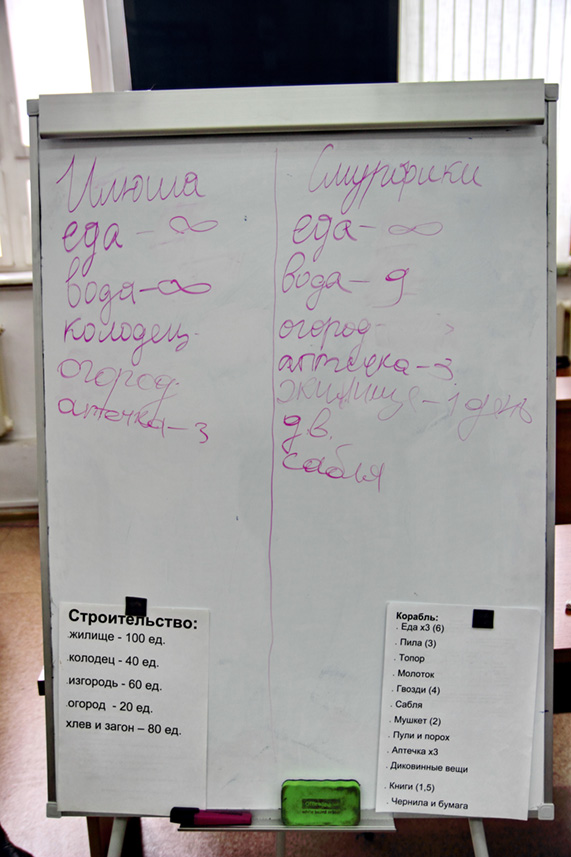 Илюша
еда - ∞
вода - ∞
колодец
огород
аптечка - 3
Смурфики
еда - ∞
вода - 9
огород
аптечка - 3
жилище - 1 день
д.в.
сабля
Строительство:
жилище - 100 ед.
колодец - 40 ед.
изгородь - 60 ед.
огород - 20 ед.
хлев и загон – 80 ед.
Корабль:
. Еда х3 (6)
. Пила (3)
. Топор
. Молоток
. Гвозди (4)
. Сабля
. Мушкет (2)
. Пули и порох
. Аптечка х3
. Диковинные вещи
. Книги (1,5)
. Чернила и бумага